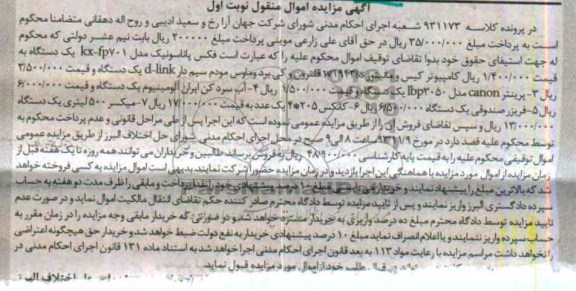 آگهی مزایده اموال منقول نوبت اول
در پرونده کلاسه ۹۳۱۱۷۳ شعبه اجرای احکام مدنی شورای شرکت جهان آرا رخ و سعید ادیبی و روح اله دهقانی متضامنا محکوم
است به پرداخت مبلغ ۳۵/۰۰۰/۰۰۰ ریال در حق آقای علی زارعی موینی پرداخت مبلغ ۲۰۰۰۰۰ ریال بابت نیم عشر دولتی که محکوم
له جهت استیفای حقوق خود بدوا تقاضای توقیف اموال محکوم علیه را که عبارت است فکس پاناسونیک مدل kx-fp۷۰۱ یک دستگاه به
قیمت ۱/۴۰۰/۰۰۰ ریال کامپیوتر کیس و مانیتور و کی برد وماوس مودم سیم دار d-link یک دستگاه و قیمت ۳/۵۰۰/۰۰۰
ریال ۳-پرینتر canon مدل lbp۳۰۵۰ یک دستگاه و قیمت ۱/۵۰۰/۰۰۰ ریال ۴-آب سرد کن ایران آلومینیوم یک دستگاه و قیمت ۶/۰۰۰/۰۰۰
ریال ۵-فریزر صندوقی یک دستگاه ۶/۵۰۰/۰۰۰ ریال ۶-کانکس ۲۰۵*۴ یک عدد به قیمت ۱۷/۰۰۰/۰۰۰ ریال ۷-میکسر ۵۰۰ لیتری یک دستگاه
۱۳/۰۰۰/۰۰۰ ریال و سپس تقاضای فروش آن را از طریق مزایده عمومی نموده است که این اجرا پس از طی مراحل قانونی و عدم پرداخت محکوم به
توسط محکوم علیه قصد دارد در مورخ ساعت ۸ الی ۹ صبح در محل اجرای احکام مدنی شورای حل اختلاف البرز از طریق مزایده عمومی
اموال توقیفی محکوم علیه را به قیمت پایه کارشناسی ۴۸/۹۰۰/۰۰۰ ریال به فروش برساند طالبین و خریداران می توانند همه روزه تا یک هفته قبل از
زمان مزایده از اموال مورد مزایده با هماهنگی این اجرا بازدید و در زمان مزایده حضور شرکت نمایند بدیهی است اموال مزایده به کسی فروخته خواهد
شد که بالاترین مبلغ را پیشنهاد نمایند و خریدار می بایست مبلغ ۱۰ درصد پیشنهادی خود را نقدا پرداخت و مابقی را ظرف مدت دو هفته به حساب
سپرده دادگستری البرز واریز نمایند و پس از تایید مزایده توسط دادگاه محترم صادر کننده حکم تقاضای انتقال مالکیت اموال نماید و در صورت عدم
تایید مزایده توسط دادگاه محترم مبلغ ده درصد واریزی به خریدار مسترد خواهد شد و در صورتی که خریدار مابقی وجه مزایده را در زمان مقرر به
حساب سپرده واریز ننمایند و یا اعلام انصراف نماید مبلغ ۱۰ درصد پیشنهادی خریدار به نفع دولت ضبط خواهد شد و خریدار حق هیچگونه اعتراضی
را نخواهد داشت مراسم مزایده با رعایت مواد ۱۱۳ به بعد قانون اجرای احکام مدنی اجرا خواهد شد به استناد ماده ۱۳۱ قانون اجرای احکام مدنی در
طلب خود از اموال مورد مزایده قبول نماید.
اختلاف البرز